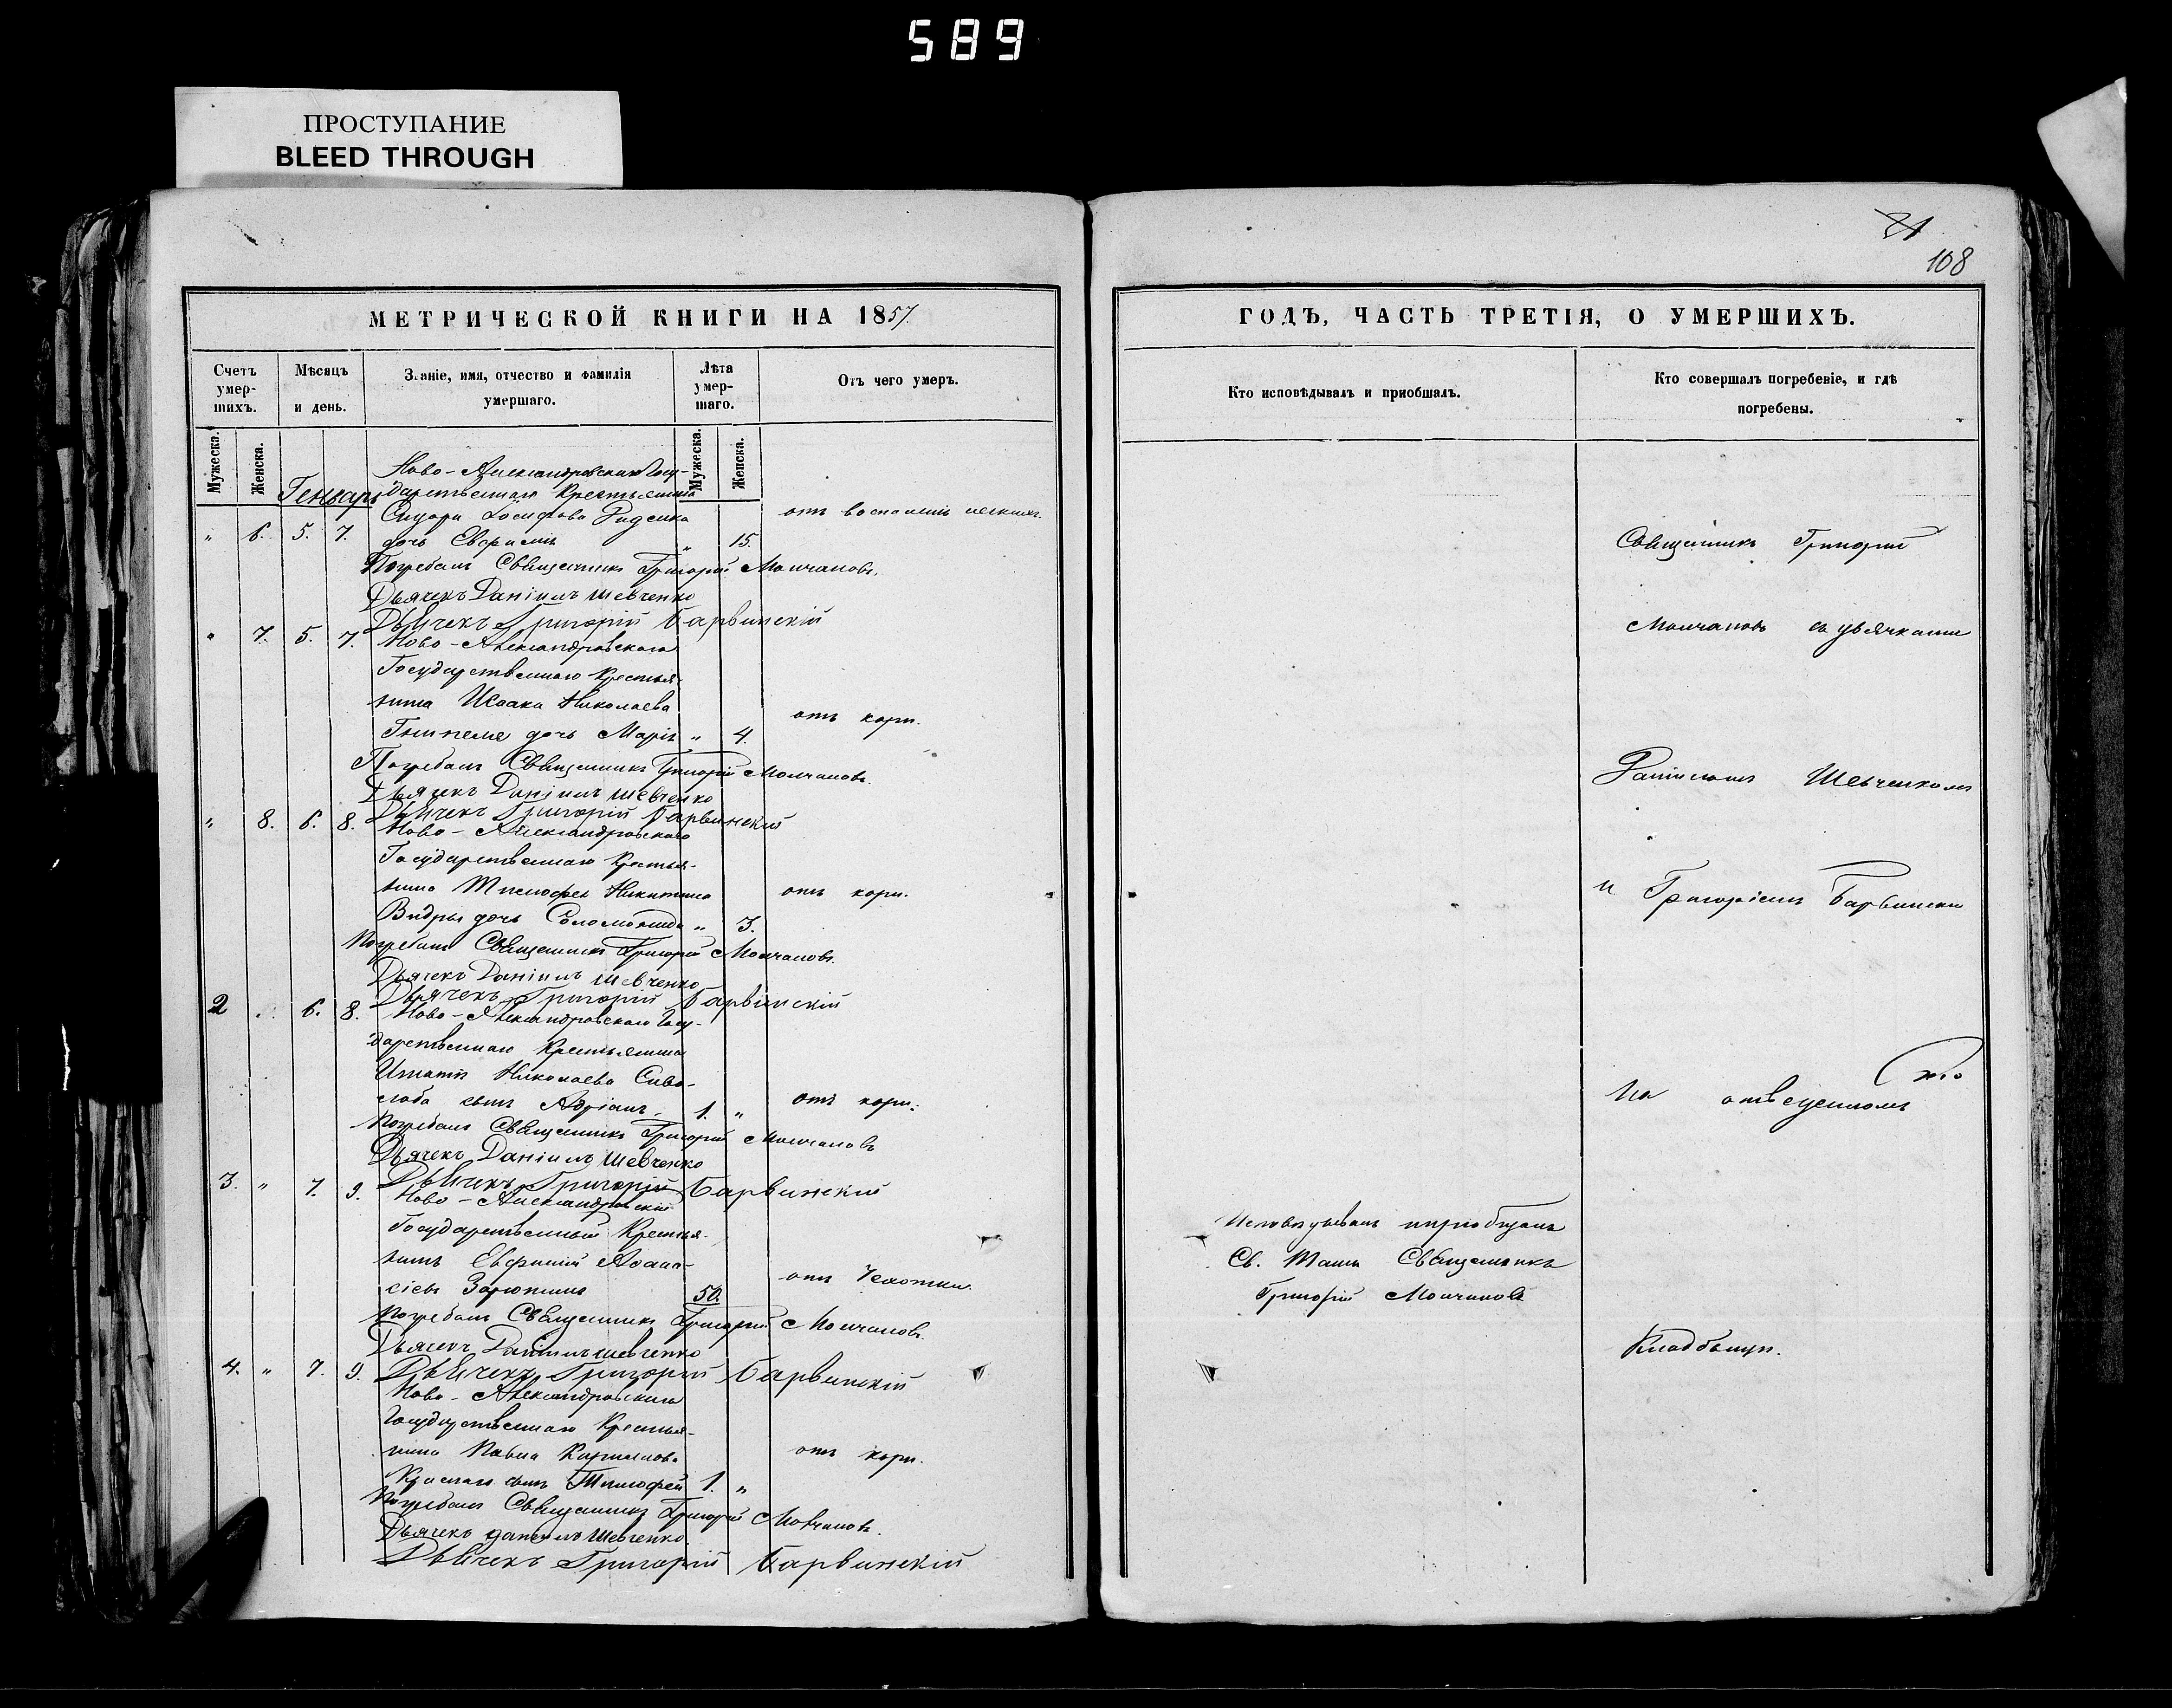 589
ПРОСТУПАНИЕ
BLEED THROUGH
108
МЕТРИЧЕСКОЙ КНИГИ НА 1857.
Счетъ умер-шихъ.
Мѣсяцъ и день.
Званіе, имя, отчество и фамилія умершаго.
Лѣта умер-шаго.
Отъ чего умеръ.
Мужеска.
Женска.
Мужеска.
Женска.
Генварь
Ново-Александровскаго Госу-
дарственнаго Крестьянина
Сидора Іосифова
" 6. 5. 7. дочь Евфимія " 15. отъ воспаленія легкихъ.
Погребалъ Священникъ Григорій Молчановъ.
Дьячекъ Даніилъ Шевченко
Дьячекъ Григорій Барвинскій
" 7. 5. 7. Ново-Александровскаго
Государственнаго Крестья-
нина Исаака Николаева
дочь Марія " 4. отъ кори.
Погребалъ Священникъ Григорій Молчановъ.
Дьячекъ Даніилъ Шевченко
Дьячекъ Григорій Барвинскій
" 8. 6. 8. Ново-Александровскаго
Государственнаго Крестья-
нина Тимофея Никитина отъ кори.
Выдры дочь Соломонида " 3.
Погребалъ Священникъ Григорій Молчановъ.
Дьячекъ Даніилъ Шевченко
Дьячекъ Григорій Барвинскій
2 " 6. 8. Ново-Александровскаго Госу-
дарственнаго Крестьянина
Игнатія Николаева Сиво-
сынъ Адріанъ 1. " отъ кори.
Погребалъ Священникъ Григорій Молчановъ
Дьячекъ Даніилъ Шевченко
Дьячекъ Григорій Барвинскій
3. " 7. 9. Ново-Александровскій
Государственный Крестья-
нинъ Евфимій Афана-
сіевъ 50. отъ чахотки.
Погребалъ Священникъ Григорій Молчановъ.
Дьячекъ Даніилъ Шевченко
Дьячекъ Григорій Барвинскій
4. " 7. 9. Ново-Александровскаго
Государственнаго Крестья-
нина Павла отъ кори.
сынъ Тимофей 1. "
Погребалъ Священникъ Григорій Молчановъ.
Дьячекъ Даніилъ Шевченко
Дьячекъ Григорій Барвинскій
ГОДЪ, ЧАСТЬ ТРЕТІЯ, О УМЕРШИХЪ.
Кто исповѣдывалъ и приобщалъ.
Кто совершалъ погребеніе, и гдѣ погребены.
Исповѣдывалъ и приобщалъ
Св. Таинъ Священникъ
Григорій Молчановъ
Священникъ Григорій
Молчановъ съ дьячками
Даніиломъ Шевченкомъ
и Григоріемъ Барвински
На отведенномъ
Кладбищѣ.